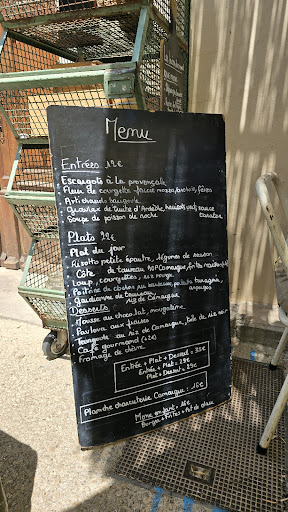 Menu
Entrées 12€
Escargots à la provençale
Fleur de courgette farcie
Artichauds barigoule
Gravlax de truite d'Ardèche, haricots verts, sauce
Soupe de poisson de roche
Plats 22€
Plat du jour
Risotto petit épeautre, légumes de saison
Côte de taureau AOP Camargue, frites
Loup, courgettes, riz rouge
Poitrine de cochon
Gardianne de taureau, riz de Camargue
Desserts
Mousse au chocolat, nougatine
Pavlova aux fraises
au riz de Camargue,
Café gourmand (+2€)
Fromage de chèvre
Entrée + Plat + Dessert = 35€
Entrée + Plat = 29€
Plat + Dessert = 29€
Planche charcuterie Camargue : 16€
Menu enfant = 16€
Burger + Frites +